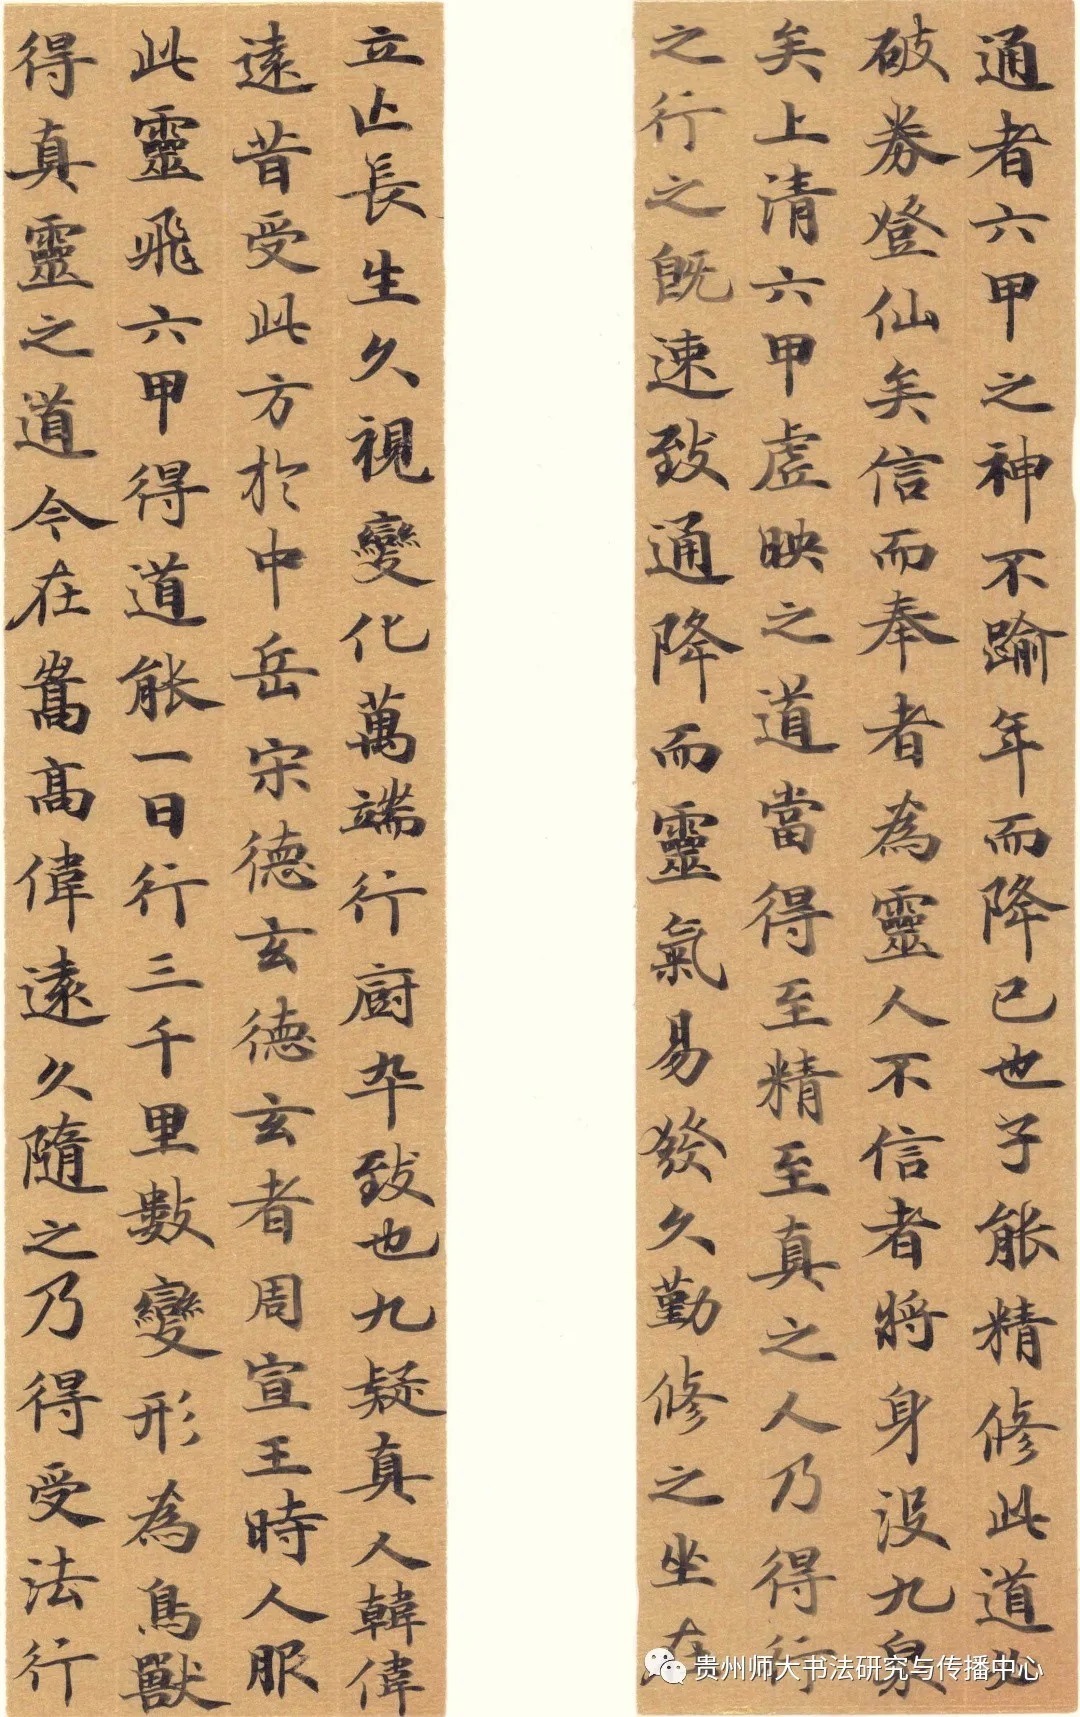 通者六甲之神不踰年而降已也子能精修此道必
破券登仙矣信而奉者為靈人不信者將身没九泉
矣上清六甲虛映之道當得至精至真之人乃得行
之行之既速致通降而靈氣易發久勤修之坐在
立亡長生久視變化萬端行廚卒致也九疑真人韓偉
遠昔受此方於中岳宋德玄德玄者周宣王時人服
此靈飛六甲得道能一日行三千里數變形為鳥獸
得真靈之道今在嵩高偉遠久隨之乃得受法行
贵州师大书法研究与传播中心